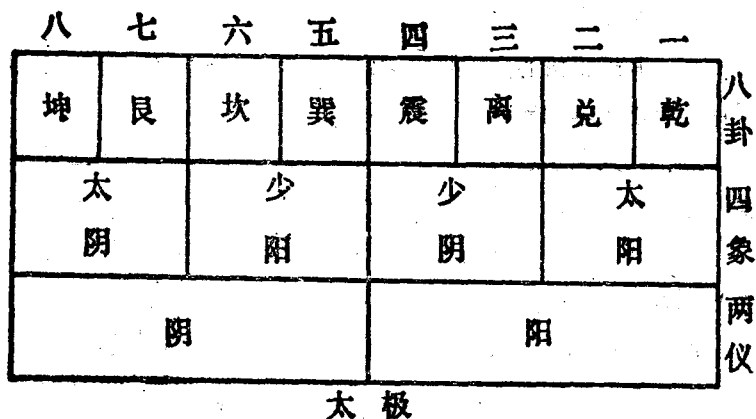 八 七 六 五 四 三 二 一
坤 艮 坎 巽 震 离 兑 乾 八卦
太阴 少阳 少阴 太阳 四象
阴 阳 两仪
太极